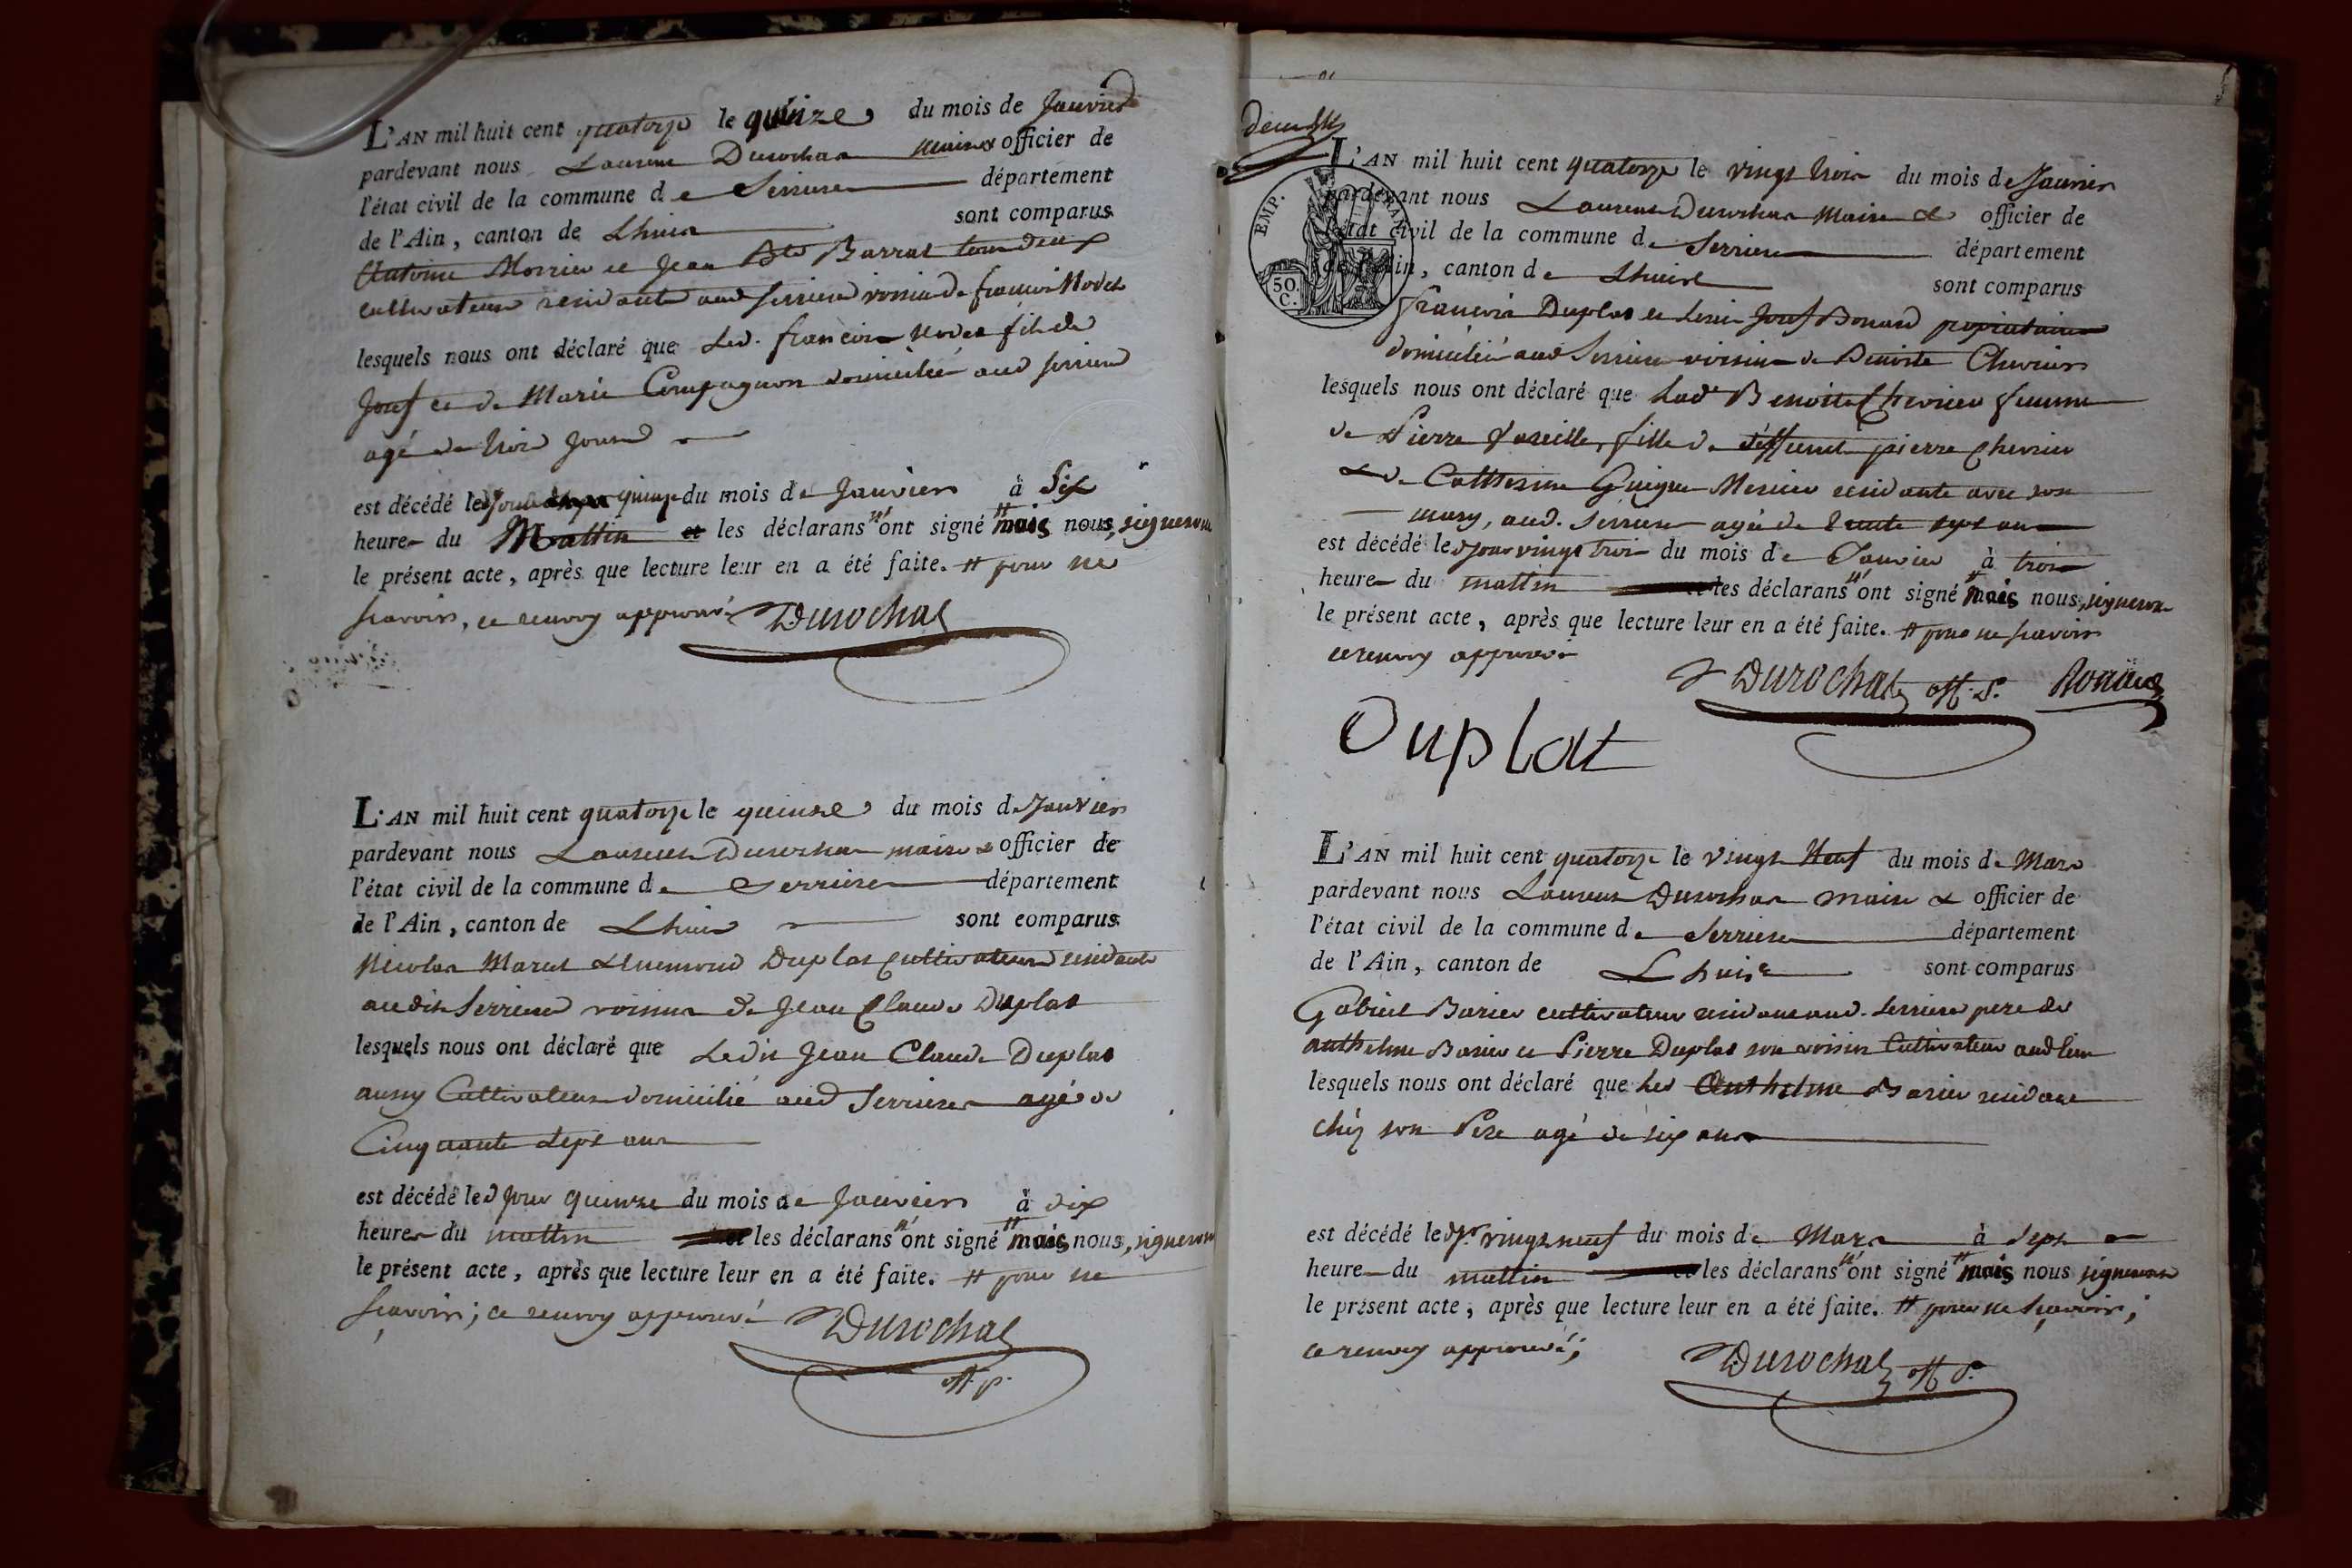 L'AN mil huit cent quatorze le quinze du mois de Janvier
pardevant nous Laurent Durochat maire & officier de
l'état civil de la commune de Serrieres département
de l'Ain, canton de Lhuis sont comparus
Antoine Morrier et Jean Bte Barrat tous deux
cultivateurs residants aud Serrieres voisin de francois Modet
lesquels nous ont déclaré que Led. francois Modet fils de
Josef et de Marie Compagnon domicilié aud serrieres
agé de trois Jours
est décédé led Jour quinze du mois de Janvier à Six
heures du Mattin et les déclarans n'ont signé mais nous, signerons
le présent acte, après que lecture leur en a été faite. # pour ne
scavoir, ce renvoy approuvé Durochat
L'AN mil huit cent quatorze le quinze du mois de Janvier
pardevant nous Laurent Durochat maire & officier de
l'état civil de la commune de Serrieres département
de l'Ain, canton de Lhuis sont comparus
Nicolas Marcel & Duplat Cultivateurs residants
audit Serrieres voisins de Jean Claude Duplat
lesquels nous ont déclaré que Ledit Jean Claude Duplat
aussy Cultivateur domicilié aud Serrieres agé de
Cinquante Sept ans
est décédé led Jour quinze du mois de Janvier à dix
heures du mattin et les déclarans n'ont signé mais nous, signerons
le présent acte, après que lecture leur en a été faite. # pour ne
scavoir; ce renvoy approuvé Durochat
off. p.
L'AN mil huit cent quatorze le vingt trois du mois de Janvier
pardevant nous Laurent Durochat Maire & officier de
l'état civil de la commune de Serrieres département
de l'Ain, canton de Lhuis sont comparus
EMP. FRAN.
50. C.
francois Duplat et Josef Bonard propriétaires
domiciliés aud Serrieres voisins de Benoite Chevrier
lesquels nous ont déclaré que Lade Benoite Chevrier femme
de Pierre fille de deffunt pierre Chevrier
& de Catherine Guigue Mercier residante avec son
mary, aud. Serrieres agée de trente sept ans
est décédé led Jour vingt trois du mois de Janvier à trois
heures du mattin et les déclarans n'ont signé mais nous, signerons
le présent acte, après que lecture leur en a été faite. # pour ne scavoir
ce renvoy approuvé
Durochat off. p. Bonard
Duplat
L'AN mil huit cent quatorze le vingt Neuf du mois de Mars
pardevant nous Laurent Durochat maire & officier de
l'état civil de la commune de Serrieres département
de l'Ain, canton de Lhuis sont comparus
Gabriel Barier cultivateur residant aud. Serrieres pere de
anthelme Barier et Pierre Duplat son voisin Cultivateur aud lieu
lesquels nous ont déclaré que Led Anthelme Barier residant
chéz son Pere agé de six ans
est décédé led Jr vingt neuf du mois de Mars à Sept
heures du mattin et les déclarans n'ont signé mais nous signerons
le présent acte, après que lecture leur en a été faite. # pour ne scavoir;
ce renvoy approuvé;
Durochat off. p.